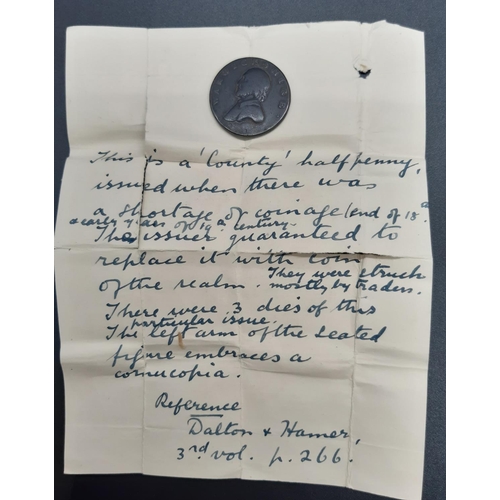 This is a 'County' halfpenny,
issued when there was
a shortage of coinage (end of 18
& early years of 19 century.
The issuer guaranteed to
replace it with coin
of the realm. They were struck
mostly by traders.
There were 3 dies of this
particular issue.
The left arm of the seated
figure embraces a
cornucopia.
Reference
Dalton & Hamer,
3rd vol. p. 266.